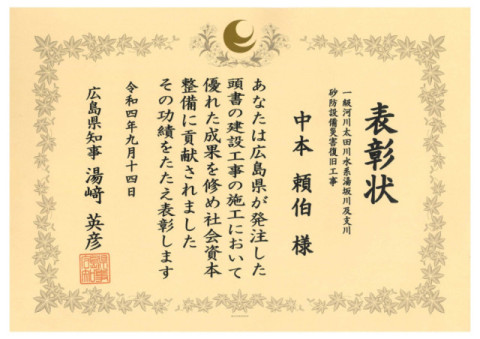 表彰状
一級河川太田川水系湯坂川及支川
砂防設備災害復旧工事
中本 頼伯 様
あなたは広島県が発注した
頭書の建設工事の施工において
優れた成果を修め社会資本
整備に貢献されました
その功績をたたえ表彰します
令和四年九月十四日
広島県知事 湯﨑 英彦